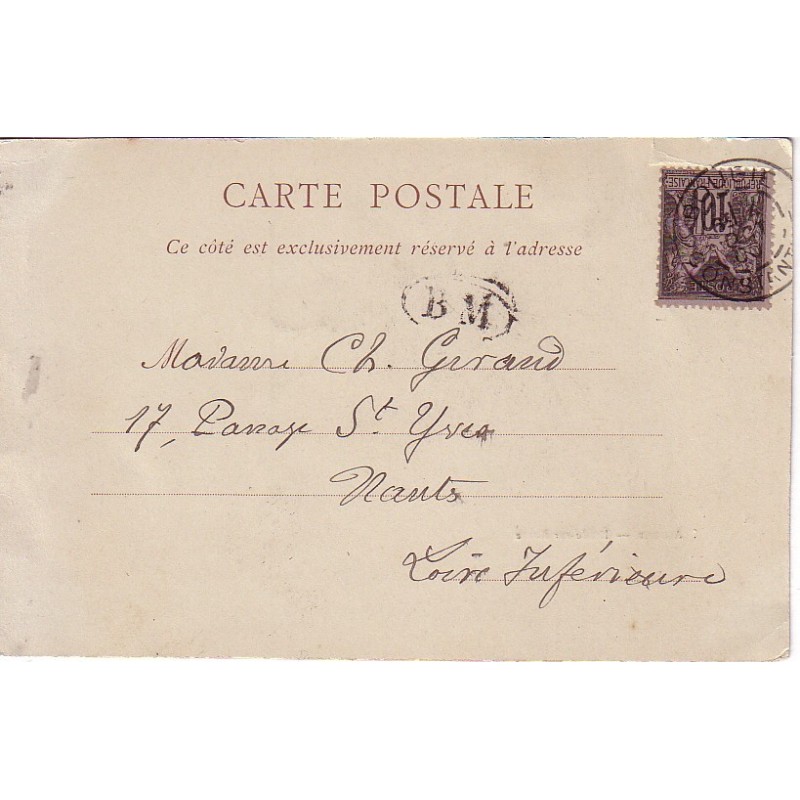 CARTE POSTALE
Ce côté est exclusivement réservé à l'adresse
B M
Madame Ch. Geraud
17, Passage St Yves
Nantes
Loire Inférieure
REPUBLIQUE FRANÇAISE
10
POSTE